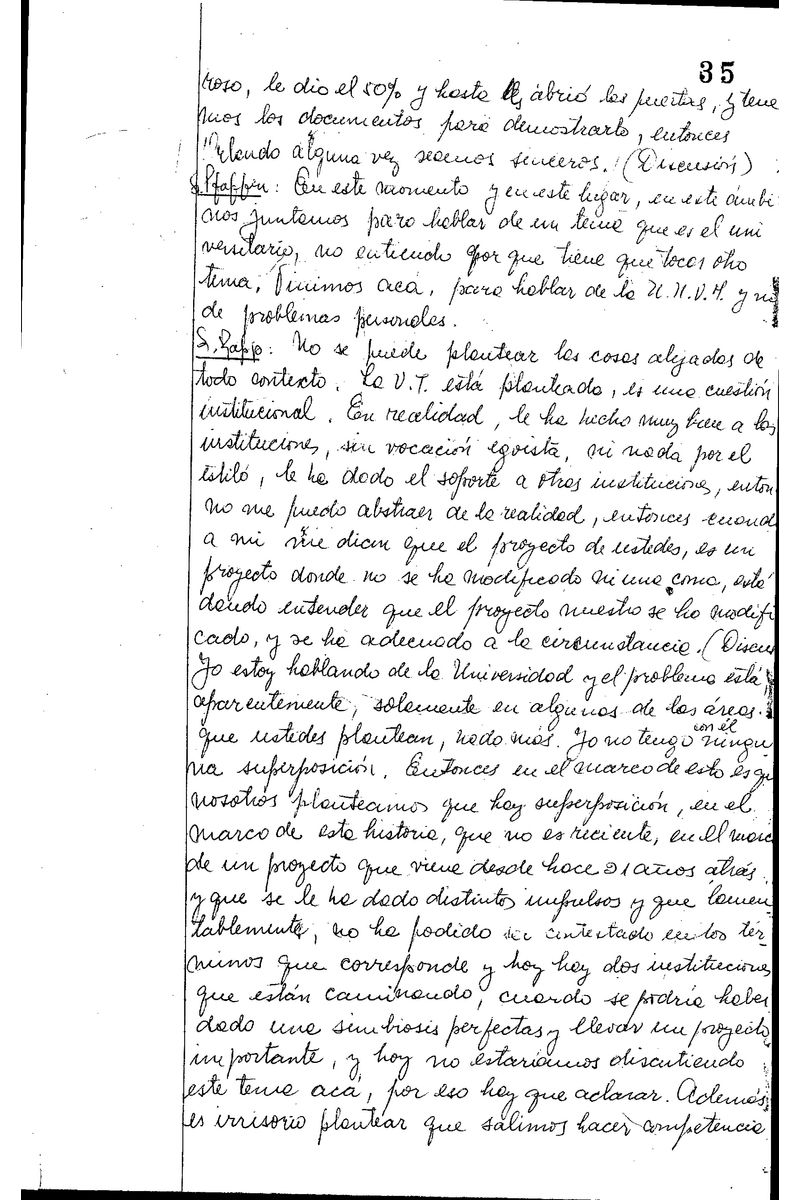 35
roso, le dio el 50% y hasta les abrió las puertas, y tene
mos los documentos para demostrarlo, entonces
alguna vez seamos sinceros. (Discusión)
S. Pfaffen: En este momento y en este lugar, en este ámbi
nos juntamos para hablar de un tema que es el uni
versitario, no entiendo por que tiene que tocar otro
tema, Vinimos acá, para hablar de la U.N.V.M. y no
de problemas personales.
S. Zappo: No se puede plantear las cosas alejadas de
todo contexto. La U.T. está planteada, es una cuestión
institucional. En realidad, le ha hecho muy bien a las
instituciones, sin vocación egoista, ni nada por el
estiló, le ha dado el soporte a otras instituciones, enton
no me puedo abstraer de la realidad, entonces cuand
a mi me dicen que el proyecto de ustedes, es un
proyecto donde no se ha modificado ni una coma, está
dando entender que el proyecto nuestro se ha modifi
cado, y se ha adecuado a la circunstancia. (Discus
Yo estoy hablando de la Universidad y el problema está,
aparentemente, solamente en algunas de las áreas.
que ustedes plantean, nada más. Yo no tengo con él ningu
na superposición. Entonces en el marco de esto es qu
nosotros planteamos que hay superposición, en el
marco de esta historia, que no es reciente, en el marc
de un proyecto que viene desde hace 21 años atrás
y que se le ha dado distintos impulsos y que lamen
tablemente, no ha podido ser contestado en los tér-
minos que corresponde y hoy hay dos instituciones
que están caminando, cuando se podría haber
dado una simbiosis perfectas y llevar un proyecto
importante, y hoy no estaríamos discutiendo
este tema acá, por eso hay que aclarar. Además
es irrisorio plantear que salimos hacer competencia